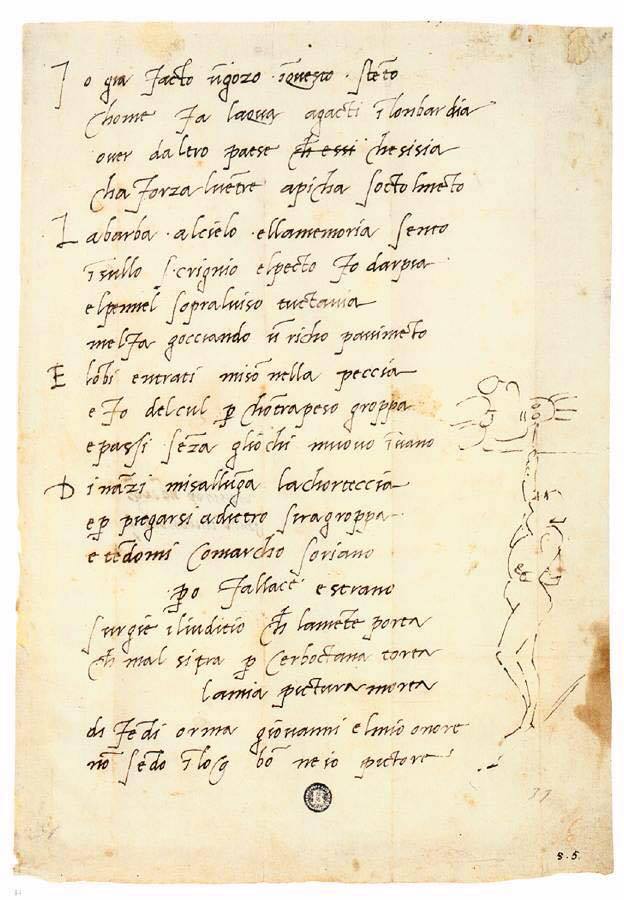 I o gia facto ũgozo ĩquesto stẽto
chome fa laqua agacti ĩlonbardia
over daltro paese ch̃ essi chesisia
cha forza luẽtre apicha socto lmẽto
L abarba alcielo ellamemoria sento
ĩsullo scrignio elpecto fo darpia
elpennel sopraluiso tuctauia
melfa gocciando ũ richo pauimẽto
E lobi entrati misõ nella peccia
e fo delcul p̱ chõtrapeso groppa
epassi sẽza gliochi muouo ĩuano
D inãzi misallũga lachorteccia
ep̱ piegarsi adietro siragroppa
e tẽdomi Comarcho soriano
p̱o fallace estrano
surgie iliuditio ch̃ lamẽte porta
ch̃ mal si tra p̱ cerboctana torta
lamia pictura morta
difẽdi orma giovanni elmio onore
nõ sẽdo ĩlog̃ bõ ne io pictore
37
S. 5.